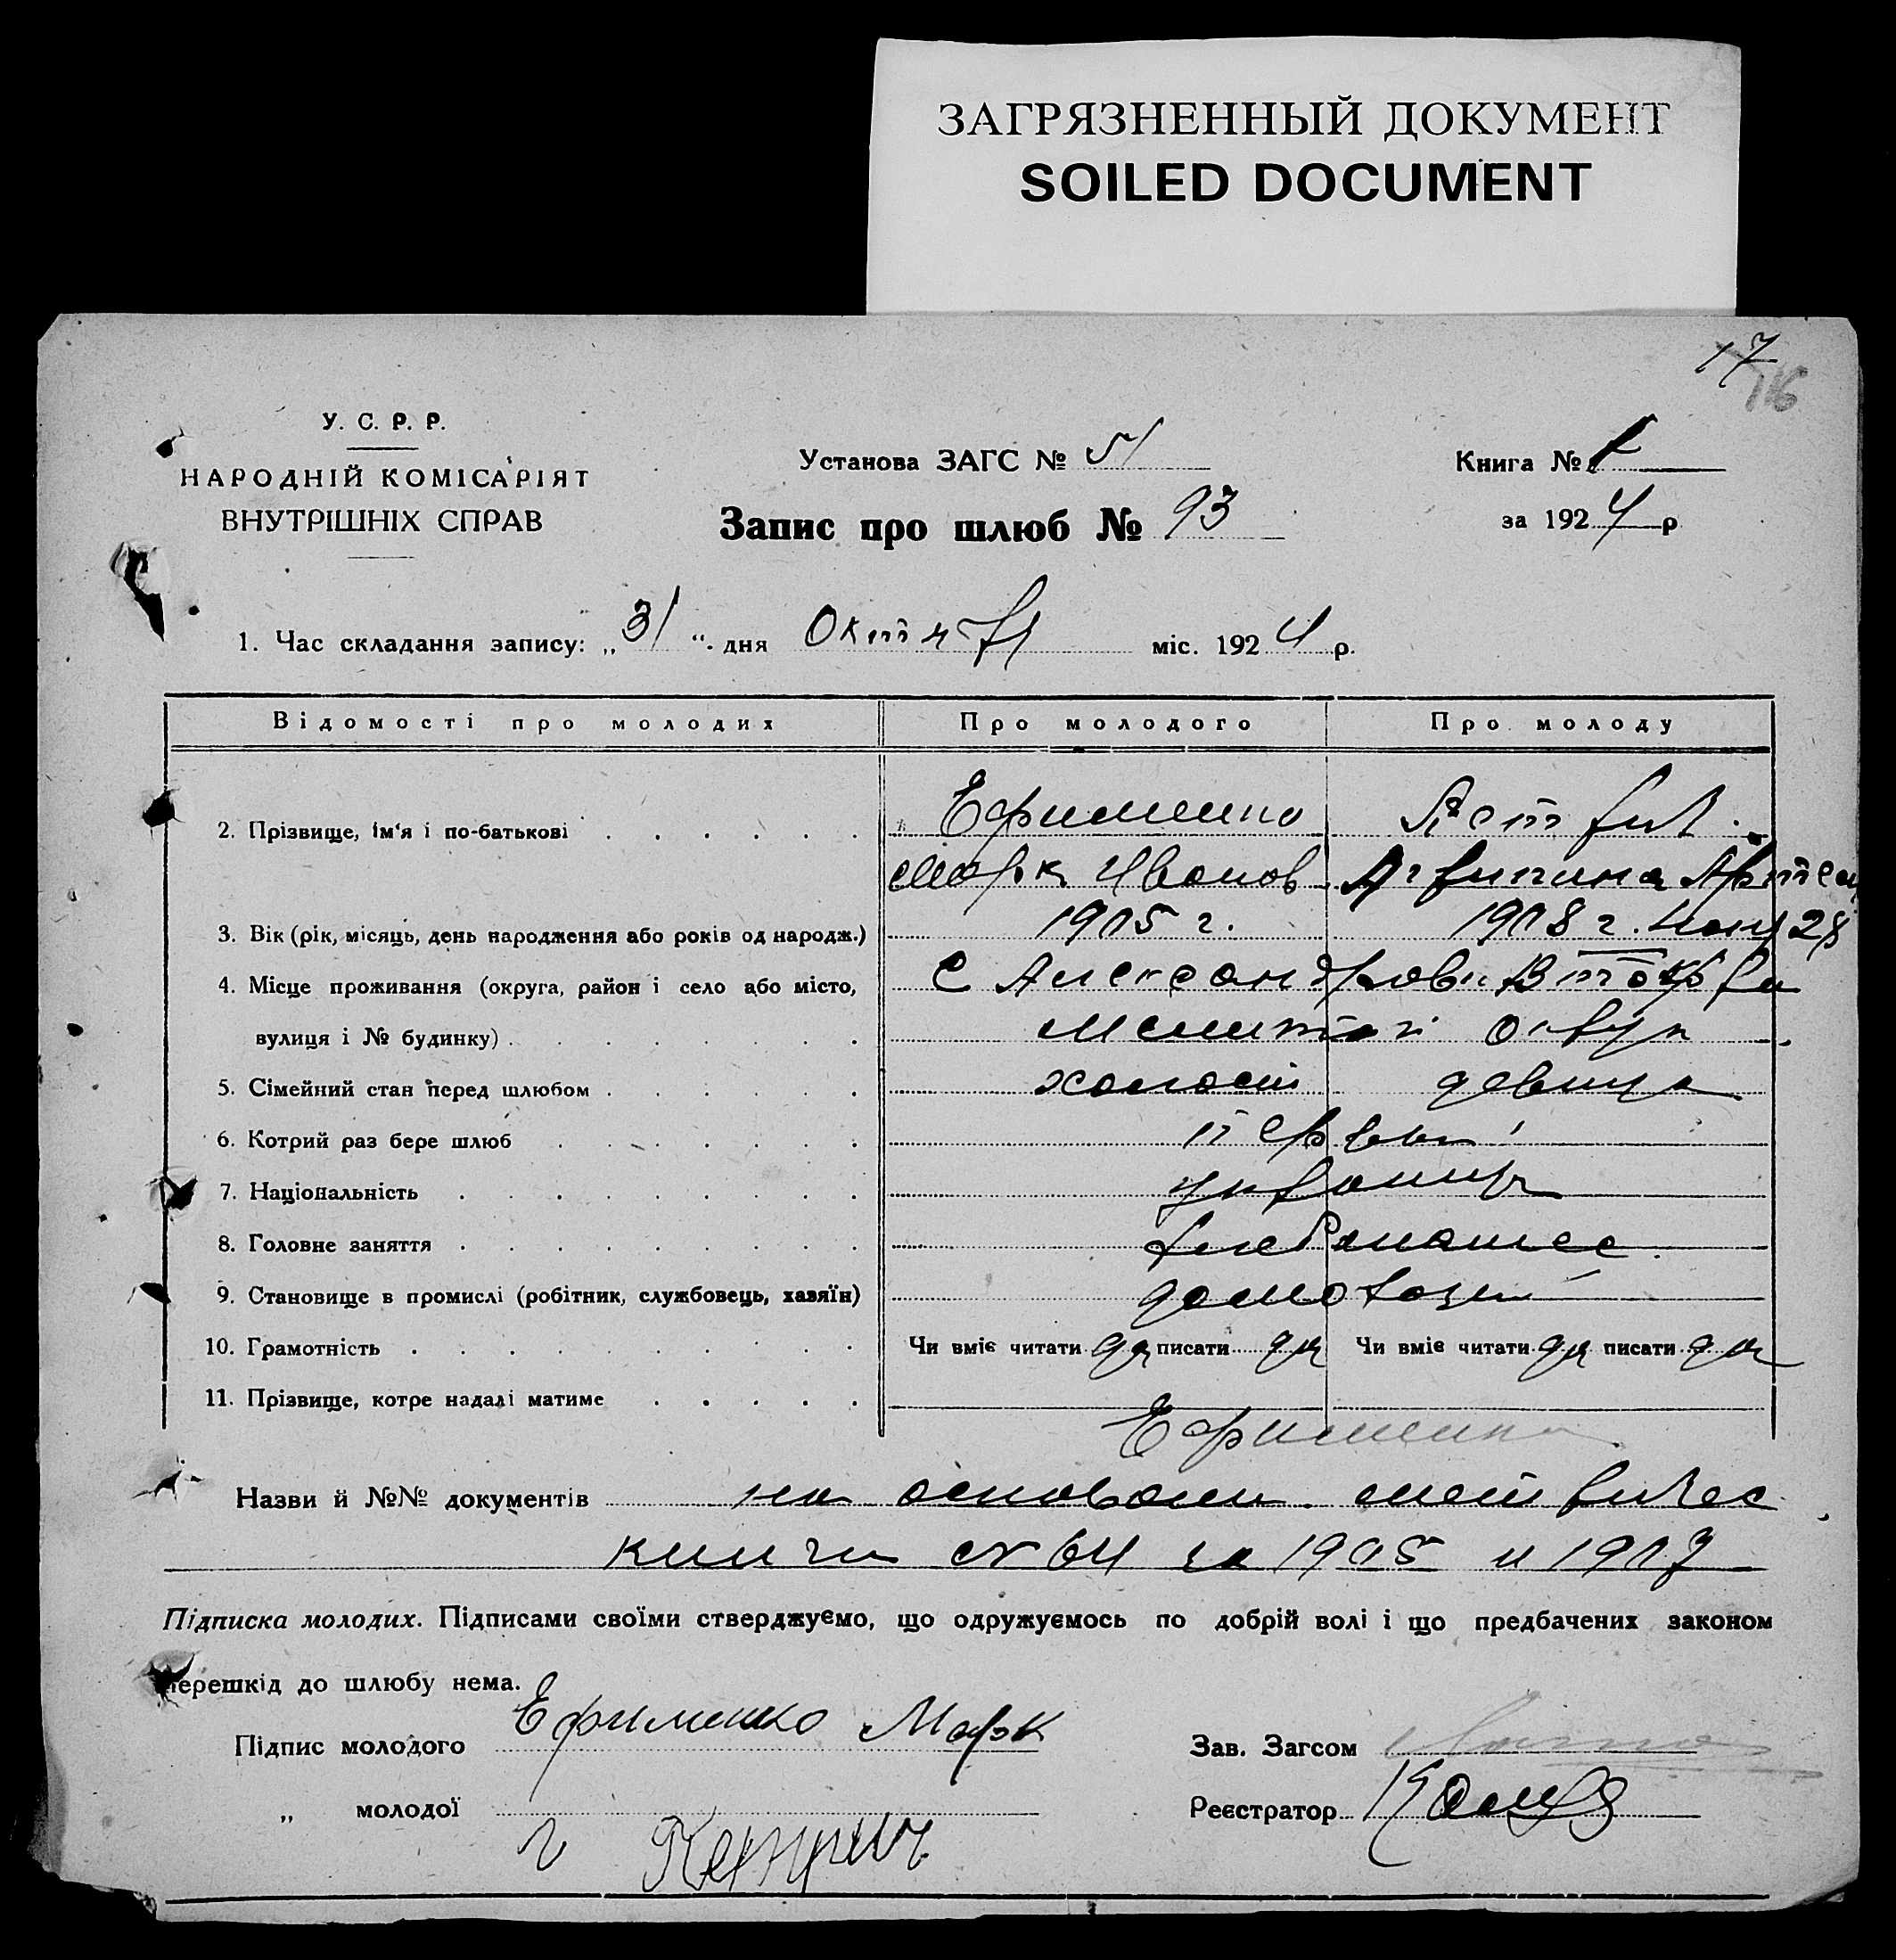 ЗАГРЯЗНЕННЫЙ ДОКУМЕНТ
SOILED DOCUMENT
17
16
У. С. Р. Р.
НАРОДНІЙ КОМІСАРІЯТ
ВНУТРІШНІХ СПРАВ
Установа ЗАГС № 51
Книга № 1
Запис про шлюб № 93
за 1924 р
1. Час складання запису: „31“ дня Октября міс. 1924 р.
Відомості про молодих Про молодого Про молоду
2. Прізвище, ім'я і по-батькові Ефименко
Марк Иванов
3. Вік (рік, місяць, день народження або років од народж.) 1905 г. 1908 г. 28
4. Місце проживання (округа, район і село або місто, С Александровк
вулиця і № будинку) округ
5. Сімейний стан перед шлюбом холост девица
6. Котрий раз бере шлюб первый
7. Національність украинцы
8. Головне заняття хлебопашес
9. Становище в промислі (робітник, службовець, хазяїн) домохозяи
10. Грамотність Чи вміє читати да писати да Чи вміє читати да писати да
11. Прізвище, котре надалі матиме
Ефименко
Назви й №№ документів на основании метричес
книги № 64 за 1905 и 1907
Підписка молодих. Підписами своїми стверджуємо, що одружуємось по добрій волі і що предбачених законом
перешкід до шлюбу нема.
Підпис молодого Ефименко Марк
Зав. Загсом
„ молодої
Реєстратор